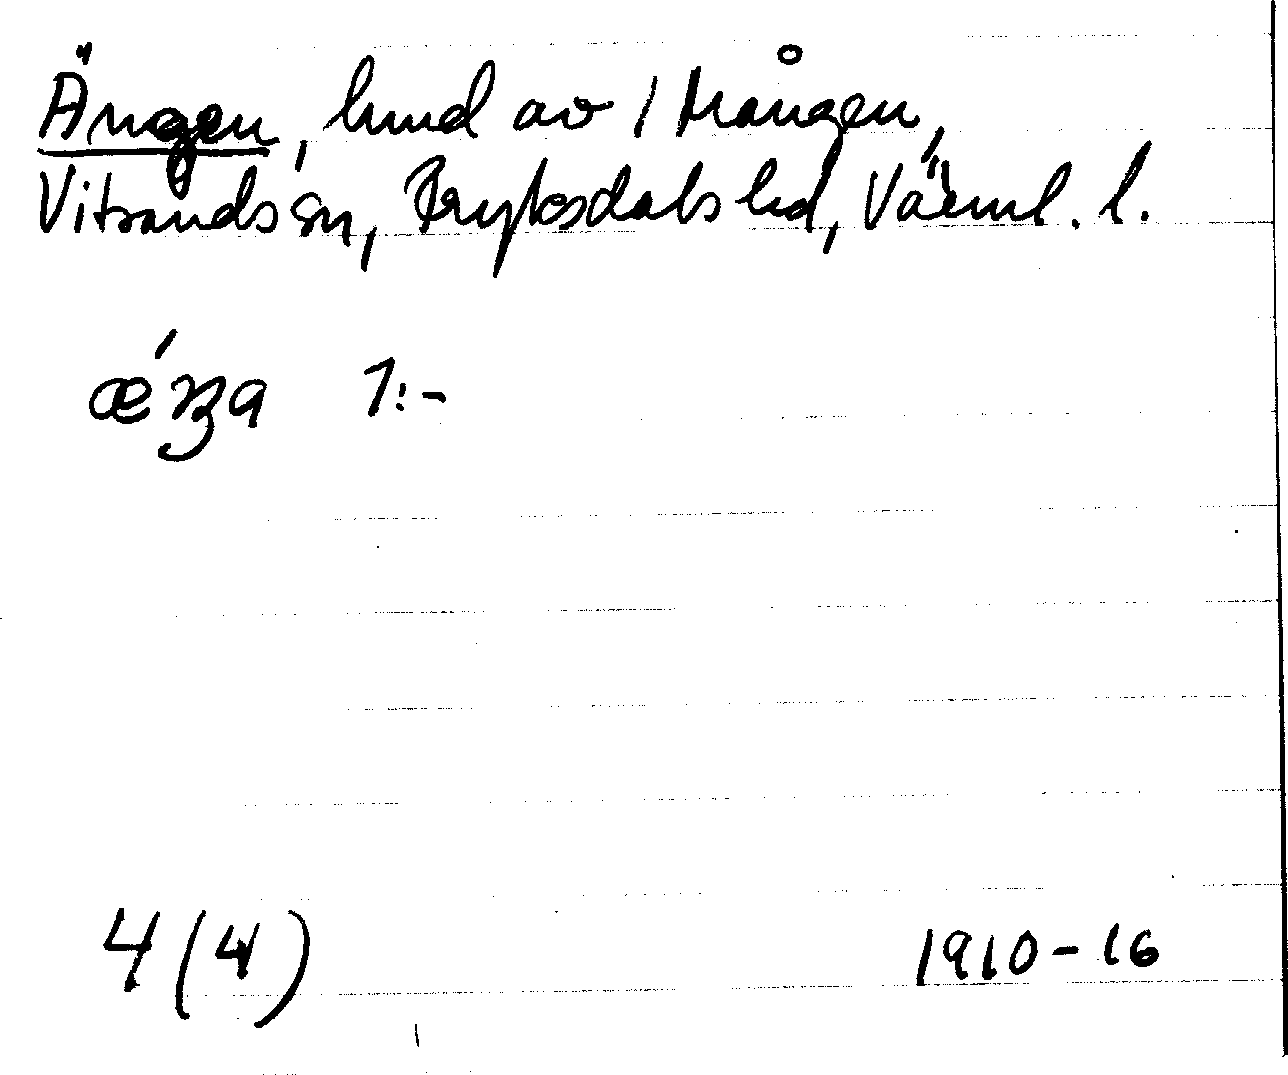 Ängen, hmd av 1 Mången,
Vitsands sn, Fryksdals hd, Värml. l.
ǽŋa 1:-
4 (4) 1910-16